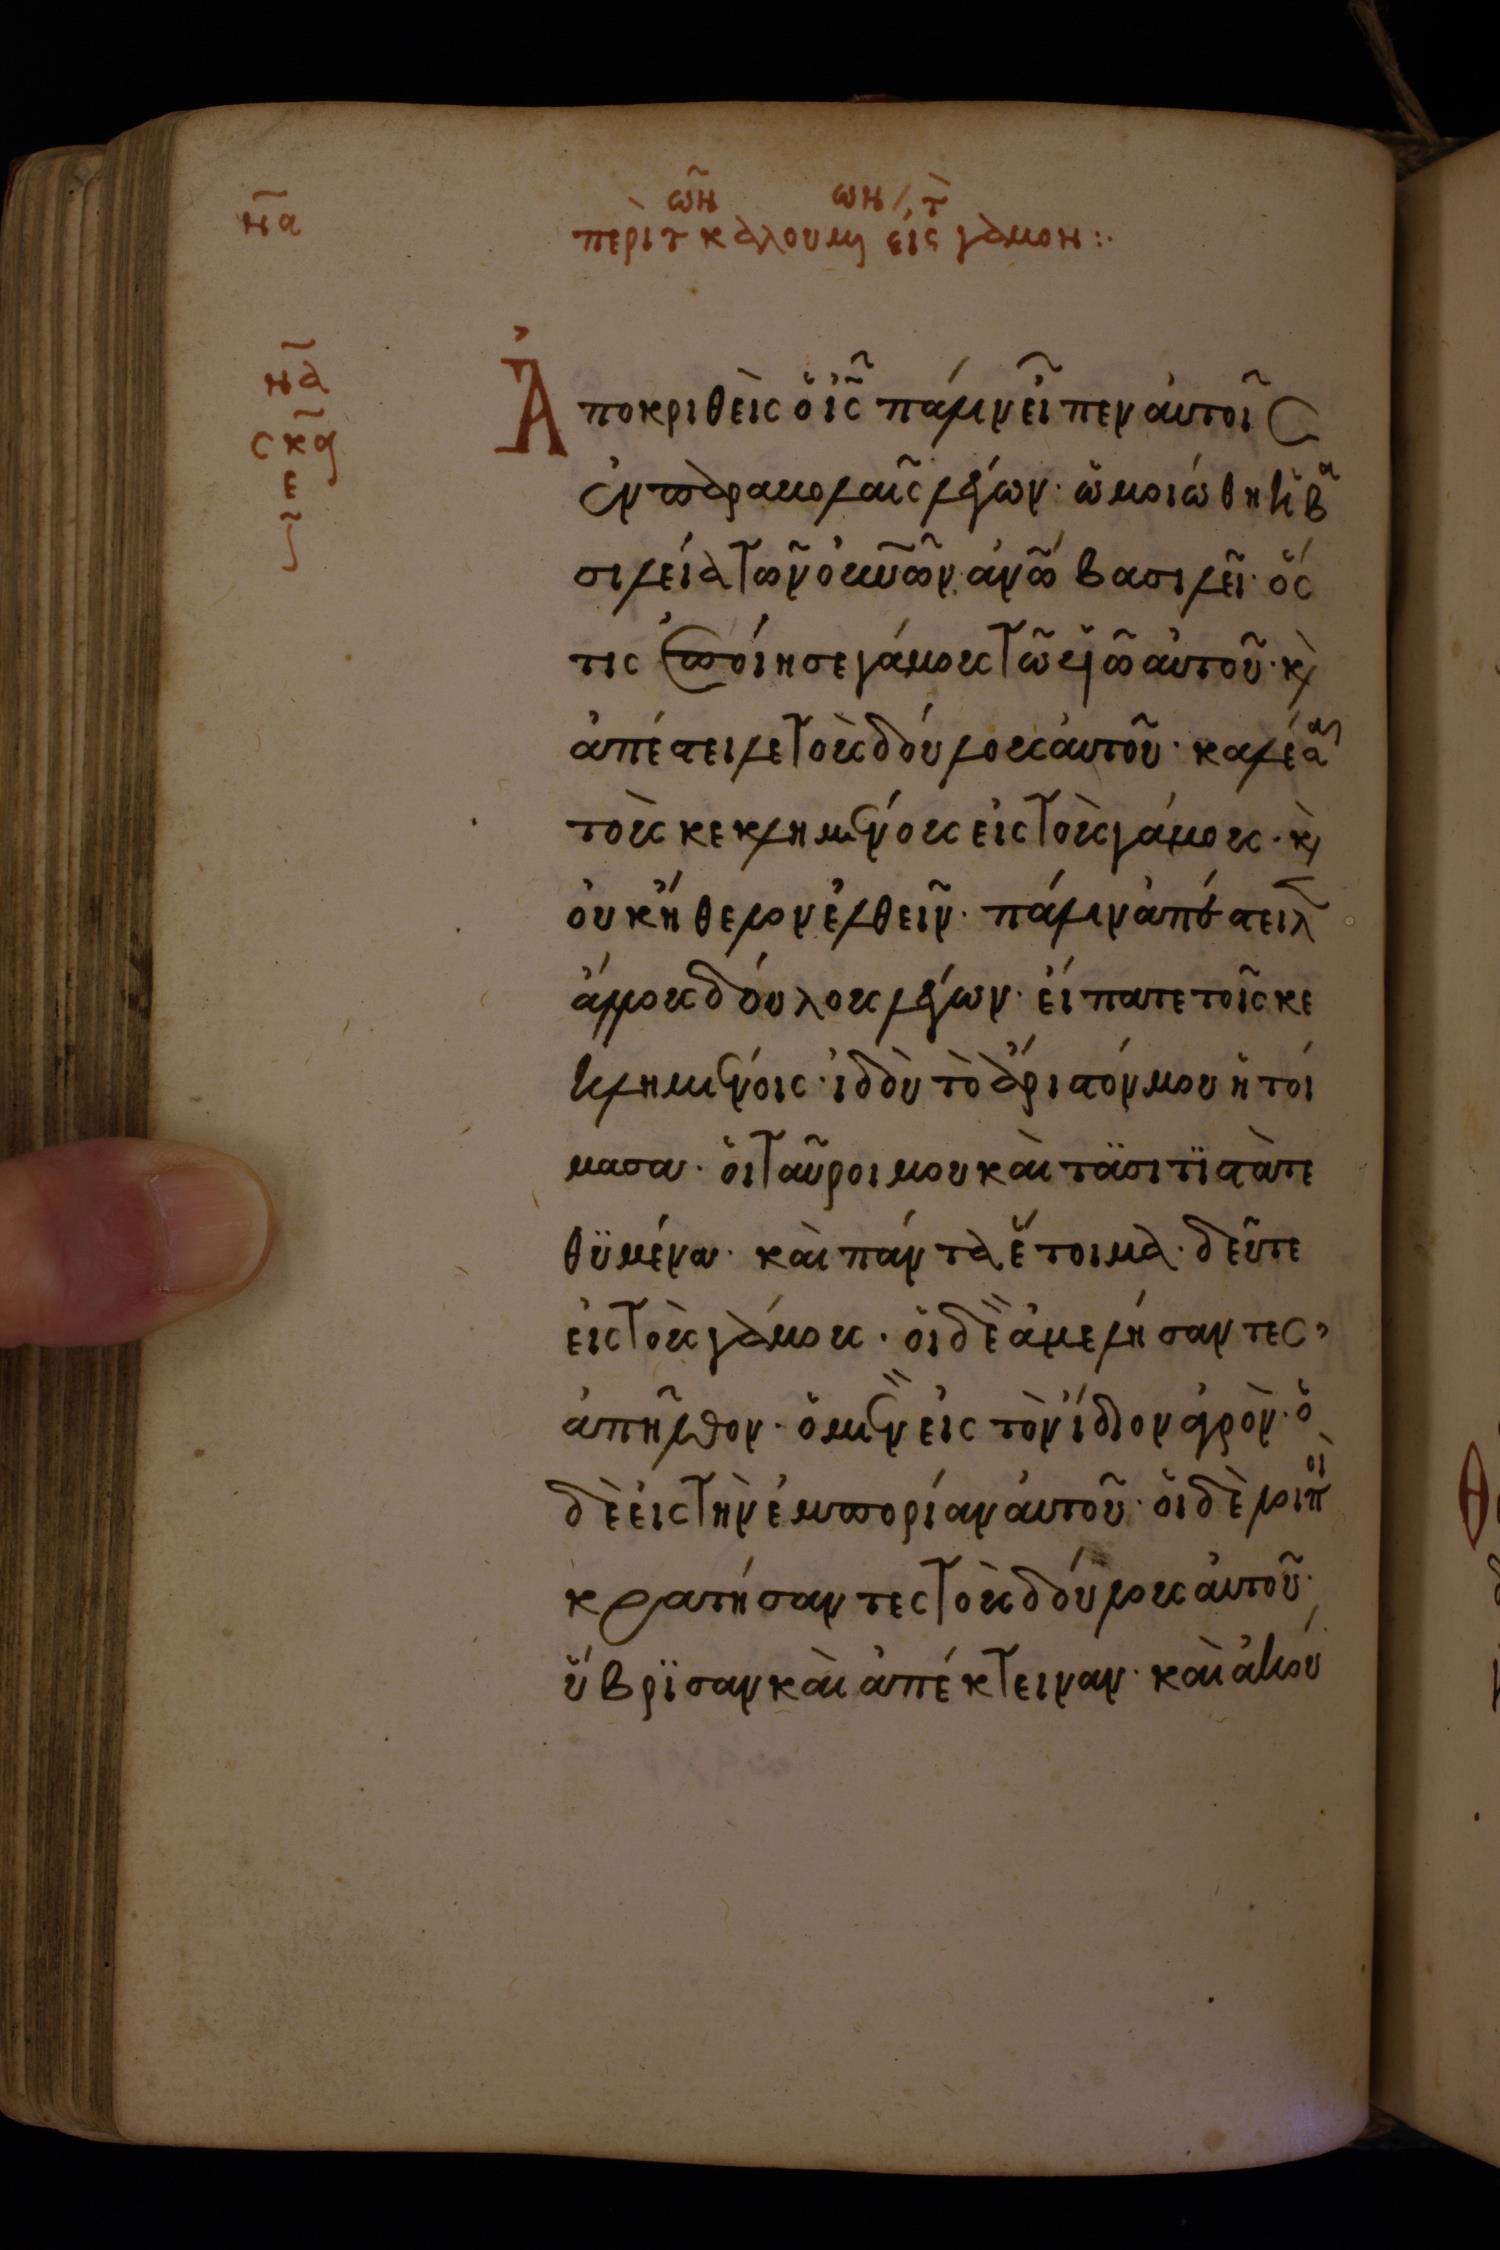 να
περὶ τῶν καλουμένων εἰς τὸν γάμον:·
να
σκα
ε
Ἀποκριθεὶς ὁ ις πάλιν εἶπεν αὐτοῖς
ἐν παραβολαῖς λέγων· ὡμοιώθη ἡ βα
σιλεία τῶν οὐνῶν ἀνω βασιλεῖ· ὅσ
τις ἐποίησε γάμους τῶ υἱῶ αὐτοῦ· κὶ
ἀπέστειλε τοὺς δούλους αὐτοῦ· καλέσαι
τοὺς κεκλημένους εἰς τοὺς γάμους· κὶ
οὐκ ἤθελον ἐλθεῖν· πάλιν ἀπέστειλ
ἄλλους δούλους λέγων· εἴπατε τοῖς κε
κλημένοις· ἰδοὺ τὸ ἄριστόν μου ἡτοί
μασα· ὁι ταῦροι μου καὶ τὰ σιτϊστὰ τε
θϋμένα· καὶ πάντα ἕτοιμα· δεῦτε
εἰς τοὺς γάμους· ὁι δὲ ἀμελήσαντες,
ἀπῆλθον· ὁ μὲν εἰς τὸν ἴδιον ἀγρὸν· ὁ
δὲ εἰς τὴν ἐμπορίαν αὐτοῦ· ὁι δὲ λοιποὶ
κρατήσαντες τοὺς δούλους αὐτοῦ·
ὕβρϊσαν καὶ ἀπέκτειναν· καὶ ἀκού